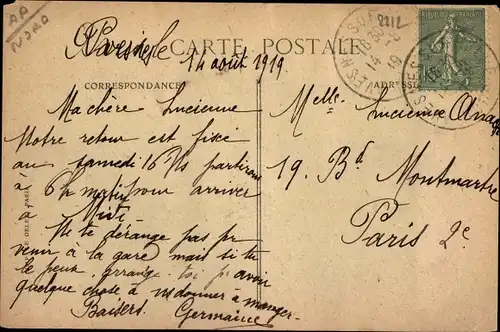 AA
NORD
CARTE POSTALE
2212
14 août 1919
CORRESPONDANCE
ADRESSE
Ma chère Lucienne
Notre retour est fixé
au samedi 16 Ns partirons
à 6h matin pour arriver
à Midi
Ne te dérange pas pr
venir à la gare mais si tu
le peux, arrange-toi pr avoir
quelque chose à ns donner à manger.
Baisers. Germaine
Melle Lucienne
19. Bd Montmartre
Paris 2e